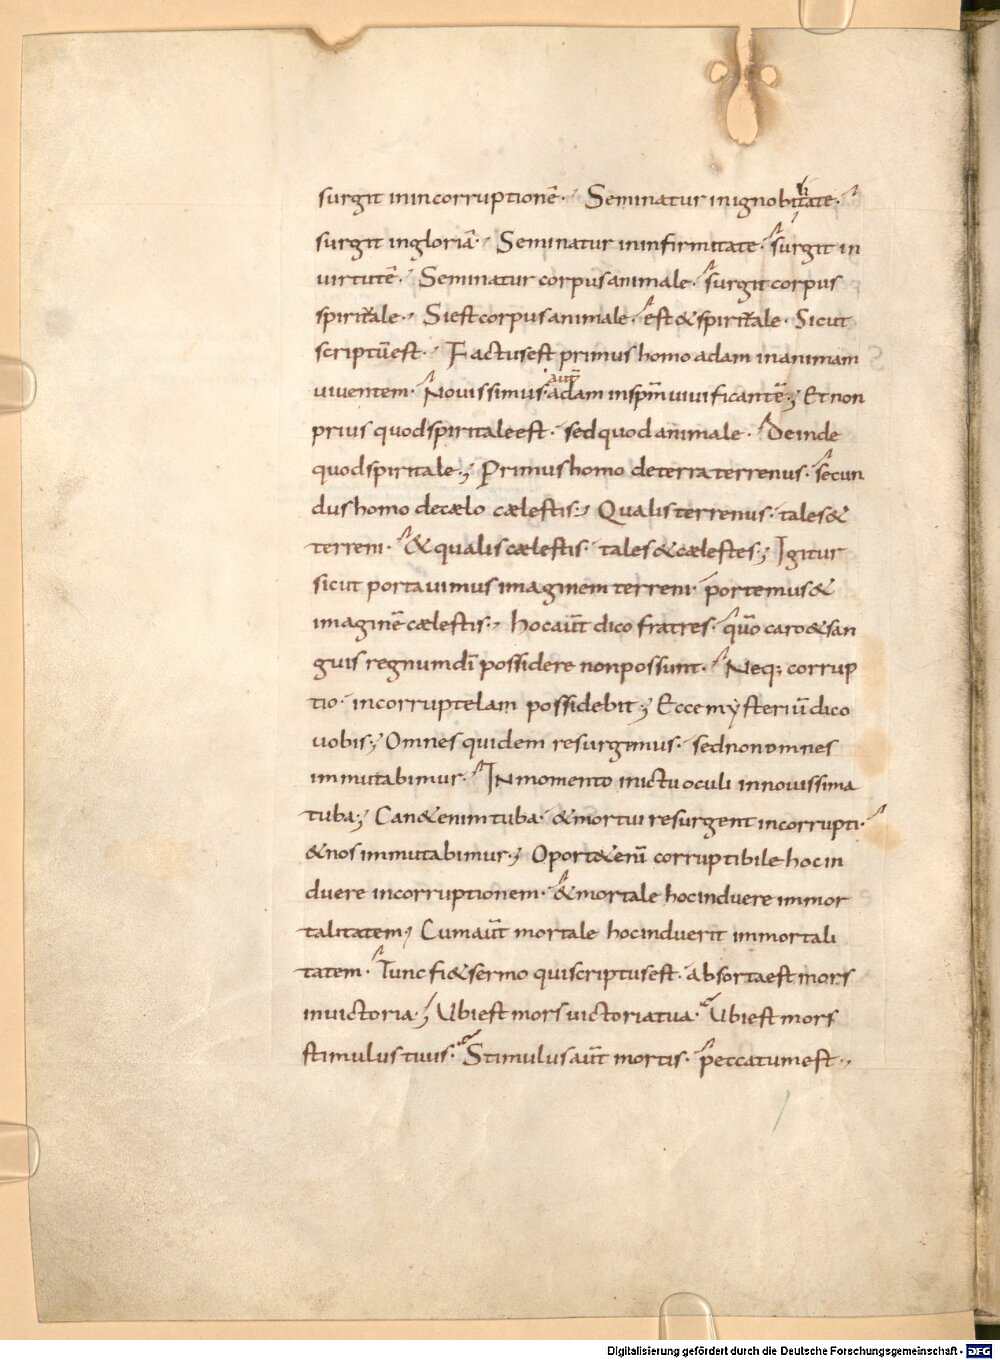 surgit inincorruptionē· Seminatur inignobilitate·
surgit ingloriā· Seminatur ininfirmitate· surgit in
uirtutē· Seminatur corpusanimale· surgitcorpus
spiritale· Siestcorpusanimale· est&spiritale· Sicut
scriptūest· Factusest primus homo adam inanimam
uiuentem· Nouissimus aūt adam inspm̄uiuificantē; Etnon
prius quodspiritaleest· sedquodanimale· deinde
quodspiritale; Primushomo deterraterrenus· secun
dushomo decælo cælestis; Qualisterrenus· tales&
terreni· &qualiscælestis· tales&cælestes; Igitur
sicut portauimus imaginem terreni· portemus&
imaginē cælestis· hocaūt dico fratres· quō caro&san
guis regnumdī possidere nonpossunt· Neq; corrup
tio· incorruptelam possidebit; Ecce mẏsteriūdico
uobis; Omnes quidem resurgimus· sednonomnes
immutabimur· INmomento inictuoculi innouissima
tuba; Can&enimtuba· &mortui resurgent incorrupti·
&nosimmutabimur; Oport&enī corruptibile hocin
duere incorruptionem· &mortale hocinduere immor
talitatem; Cumaūt mortale hocinduerit immortali
tatem· Tunc fi&sermo quiscriptusest· absortaest mors
inuictoria; Ubiest mors uictoriatua· Ubiest mors
stimulustuus· Stimulusaūt mortis· peccatumest·
Digitalisierung gefördert durch die Deutsche Forschungsgemeinschaft - DFG